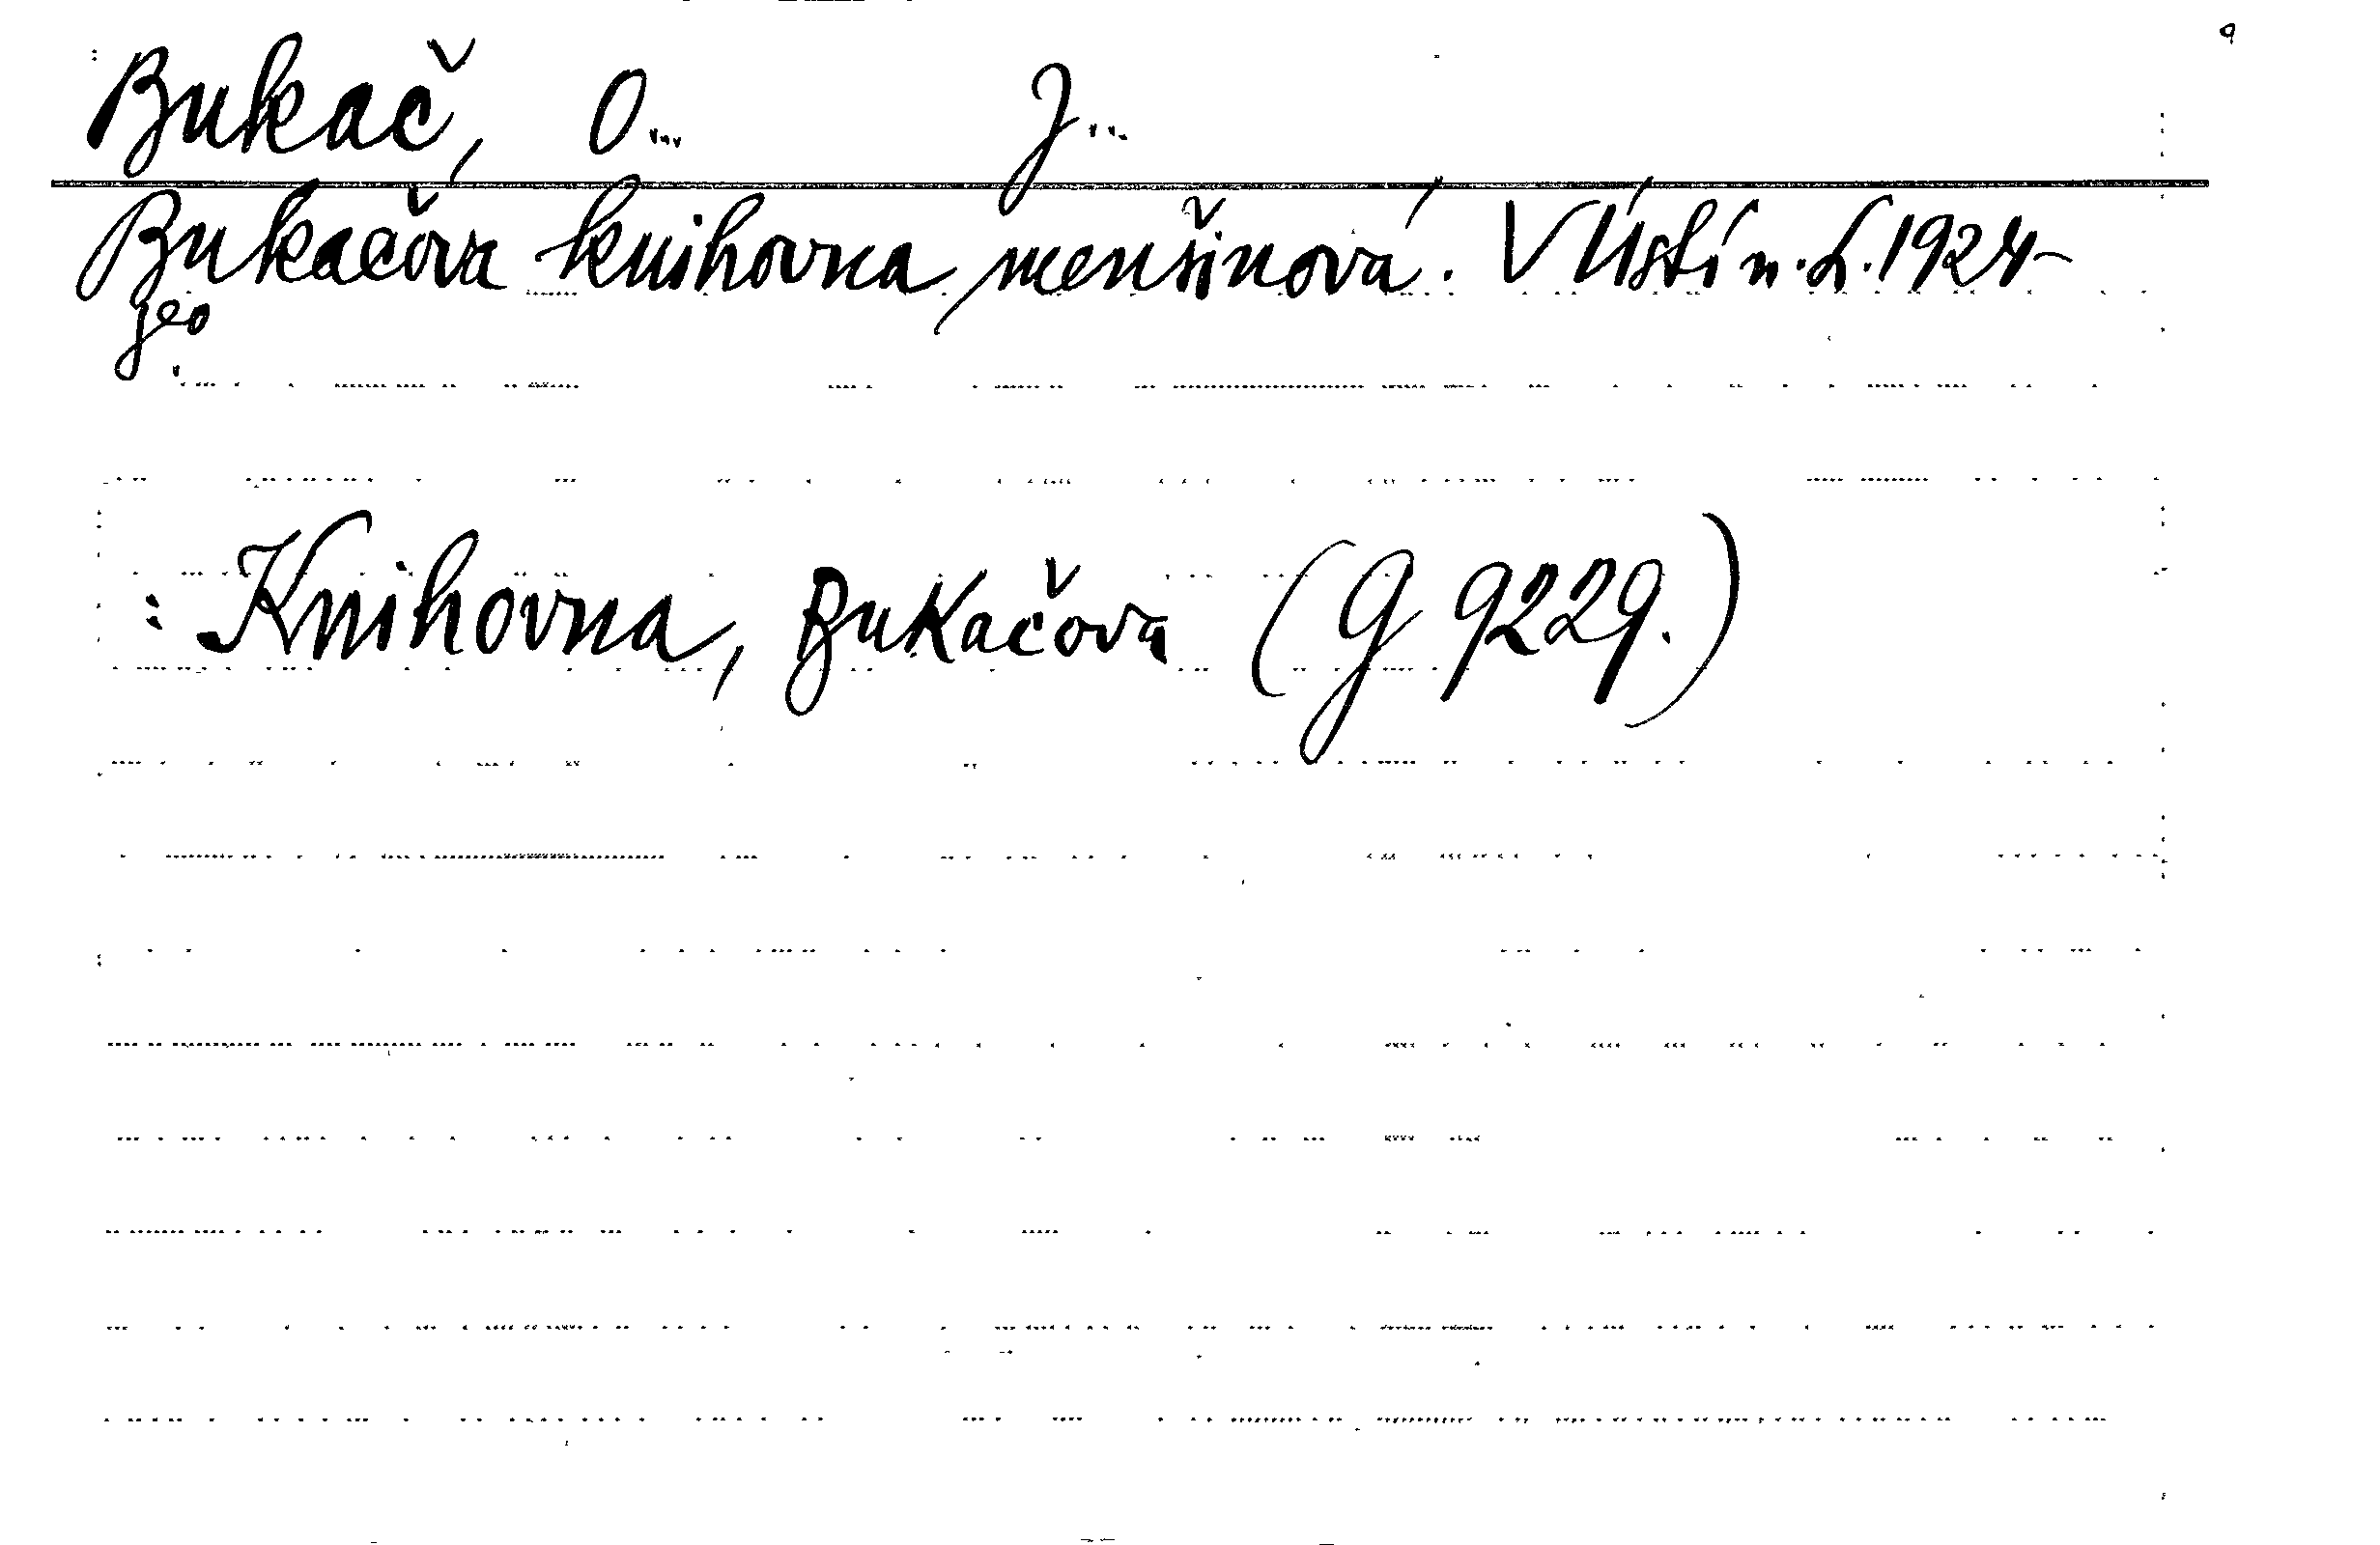 Bukač, O... J...
Bukačova knihovna menšinová. V Ústí n. L. 1924-
: Knihovna, Bukačova (G 9229.)